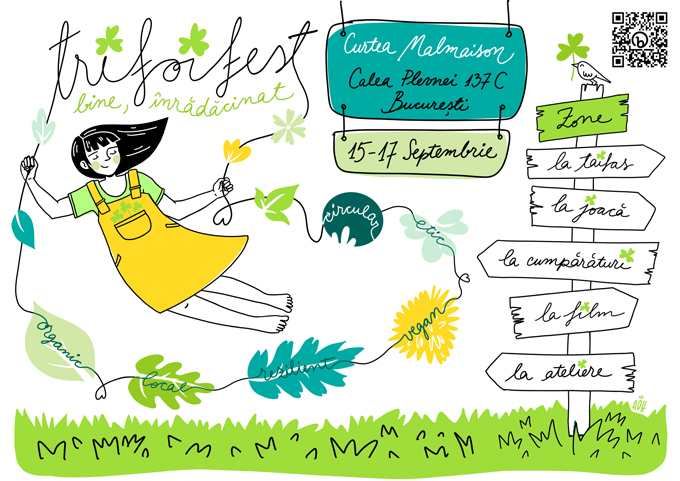 trifoifest
bine, înrădăcinat
Curtea Malmaison
Calea Plevnei 137 C
București
15-17 Septembrie
Zone
la taifas
la joacă
la cumpărături
la film
la ateliere
circular
etic
vegan
resilient
local
organic